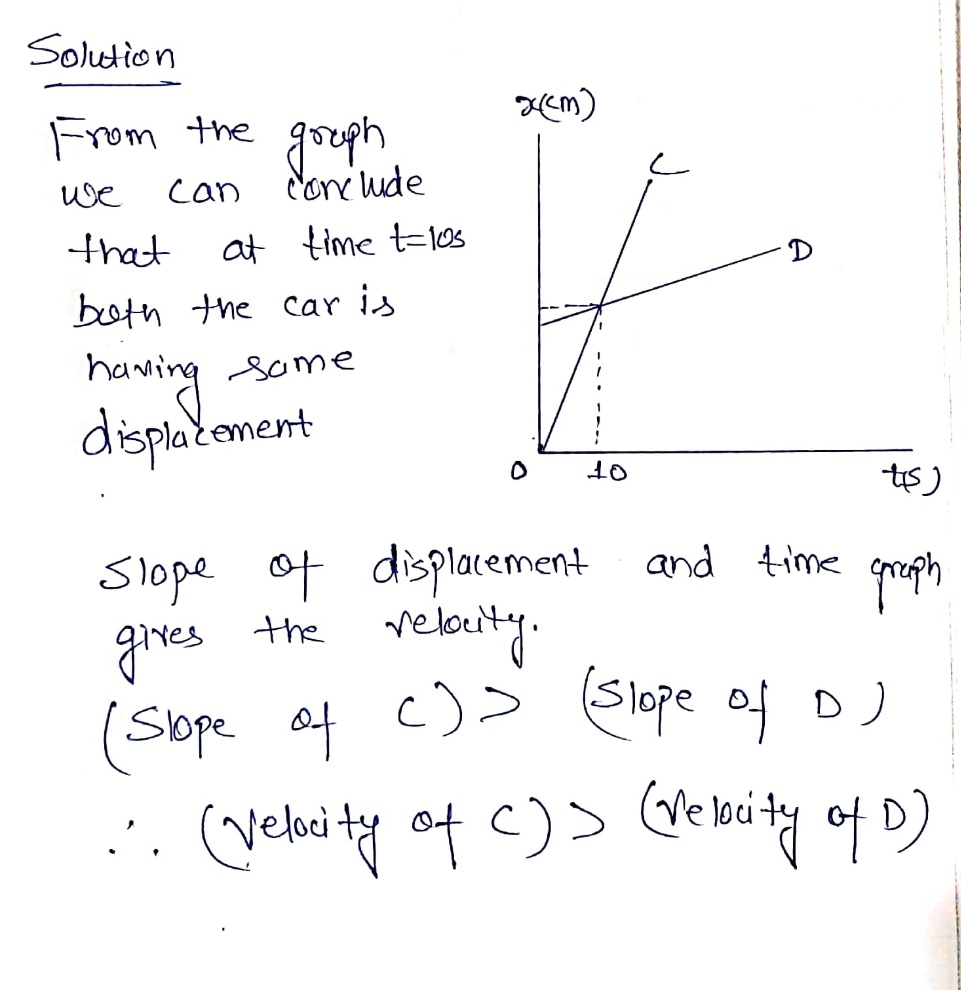 Solution
From the graph
we can conclude
that at time t=10s
both the car is
having same
displacement
x(cm)
C
D
0 10 t(s)
Slope of displacement and time graph
gives the velocity.
(Slope of C) > (Slope of D)
∴ (Velocity of C) > (Velocity of D)